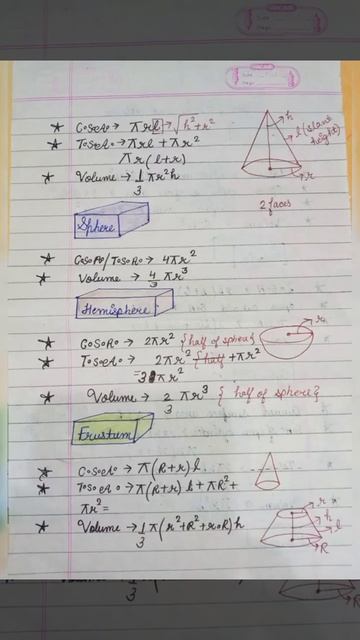 ★ C.S.A. → πrl → √h²+r²
★ T.S.A. → πrl + πr²
πr(l+r)
★ Volume → 1/3 πr²h
h
l (slant height)
r
2 faces
Sphere
★ C.S.A./T.S.A. → 4πr²
★ Volume → 4/3 πr³
Hemisphere
★ C.S.A. → 2πr² {half of sphere}
r
★ T.S.A. → 2πr² {half +πr²
=3πr²
★ Volume → 2/3 πr³ { half of sphere}
Frustum
★ C.S.A. → π(R+r)l
★ T.S.A. → π(R+r)l + πR² +
πr² =
★ Volume → 1/3 π(r²+R²+r.R)h
r
h
l
R